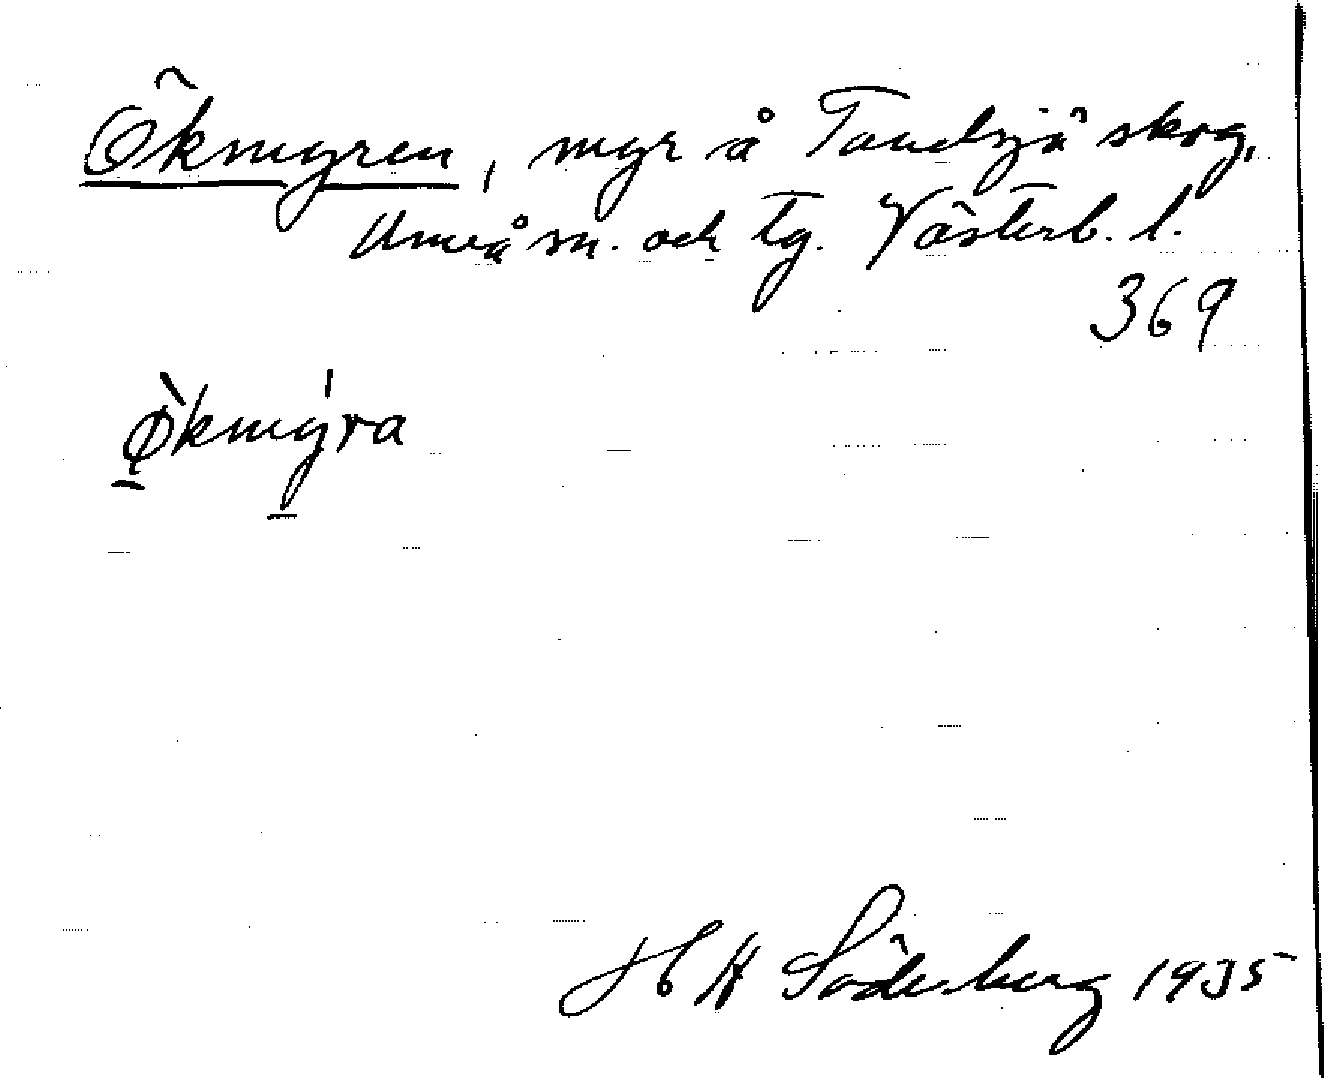 Ökmyren, myr å Tavelsjö skog,
Umeå sn. och tg. Västerb. l.
369
Økmyra
H Söderberg 1935